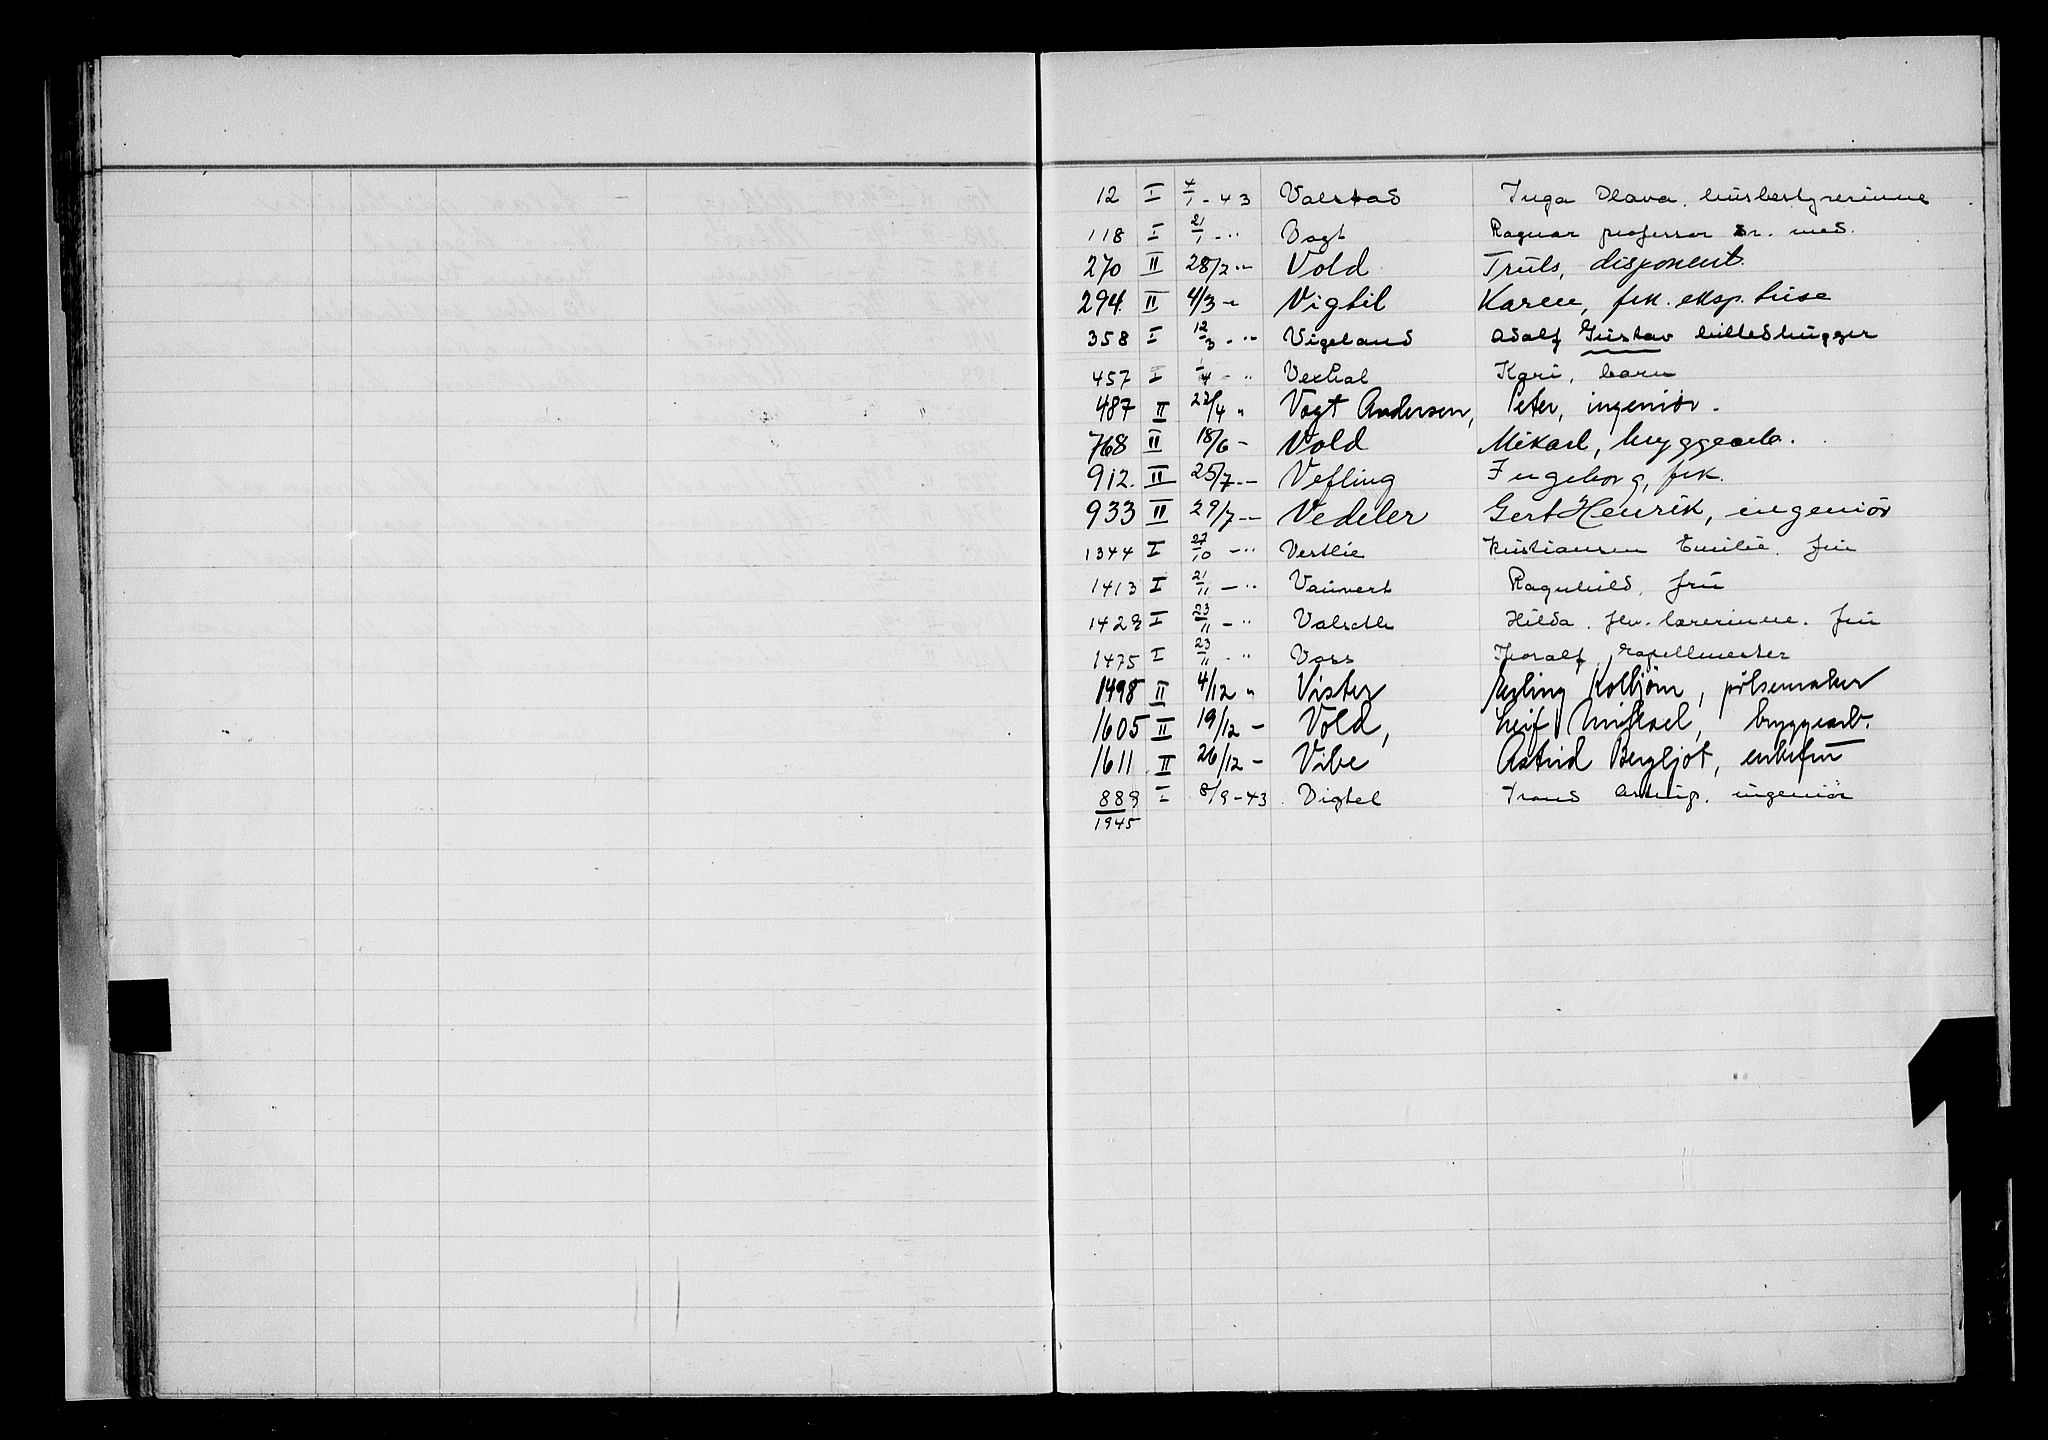 12 I 4/1 - 43 Valstad Inga Olava. husbestyrerinne
118 I 21/1 - " Vogt Ragnar professor dr. med.
270 II 28/2 " Vold Truls, disponent.
294 II 4/3 - Vigtil Karen, frk. eksp. trise
358 I 12/3 - " Vigeland Adolf Gustav billedhugger
457 I /4 - " Kari, barn
487 II 22/4 " Vogt Andersen, Peter, ingeniör.
768 II 18/6 - Vold Mikael, bryggearb.
912. II 25/7 - Vefling Ingeborg, frk.
933 II 29/7 - Vedeler Gert Henrik, ingeniör
1344 I 27/10 - " Vestlie Kristiansen Emilie. fru
1413 I 21/11 - " Vauvert Ragnhild, fru
1429 I 23/11 - " Hilda. fhv. lærerinne. fru
1475 I 23/11 - " Voss Thoralf, kapellmester
1498 II 4/12 " Vister Erling Kolbjörn, pölsemaker
1605 II 19/12 - Vold, Leif Mikael, bryggearb.
1611 II 26/12 - Vibe Astrid Bergljot, enkefru
889/1945 I 8/9 - 43 Vigtel Trond ingeniör